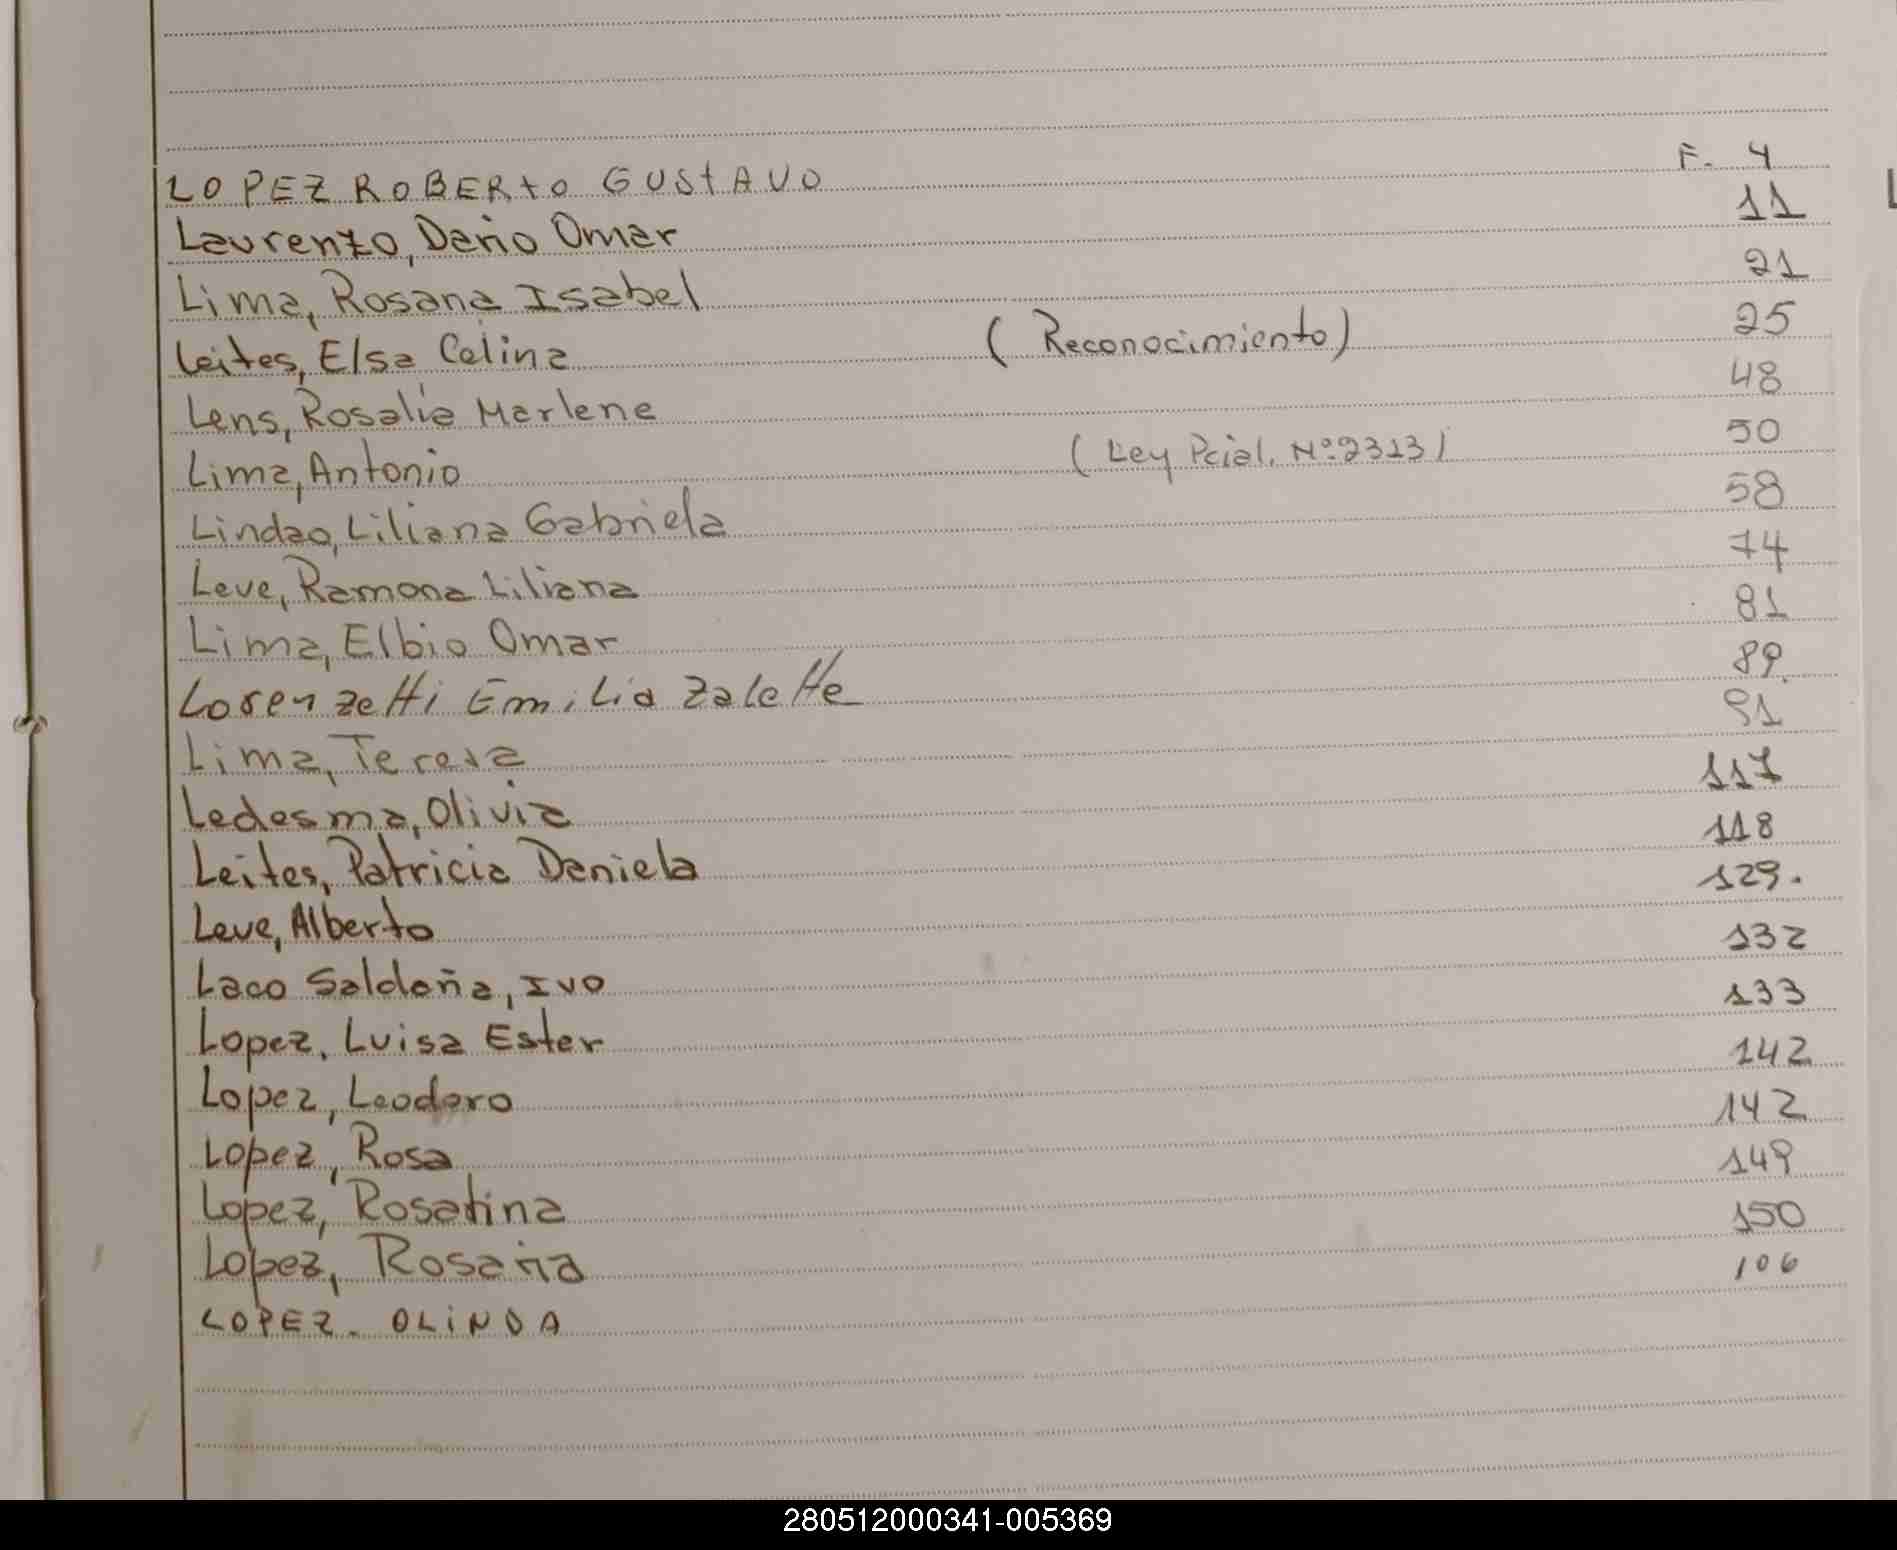 LOPEZ ROBERTO GUSTAVO F. 4
Laurenzo, Dario Omar 11
Lima, Rosana Isabel 21
Leites, Elsa Celina (Reconocimiento) 25
Lens, Rosalía Marlene 48
Lima, Antonio (Ley Pcial. Nº 2313) 50
Lindao, Liliana Gabriela 58
Leve, Ramona Liliana 74
Lima, Elbio Omar 81
Lorenzetti Emilia Zalette 89.
Lima, Teresa 91
Ledesma, Olivia 117
Leites, Patricia Daniela 118
Leve, Alberto 129.
Laco Saldaña, Ivo 132
Lopez, Luisa Ester 133
Lopez, Leodoro 142
Lopez, Rosa 142
Lopez, Rosatina 149
Lopez, Rosana 150
LOPEZ. OLINDA 106
L
280512000341-005369